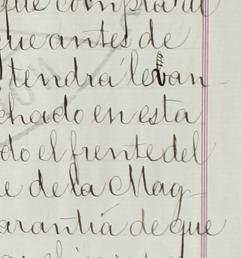 que comprara
que antes de
tendrá levan
chado en esta
do el frente del
e de la Mag-
arantia de que